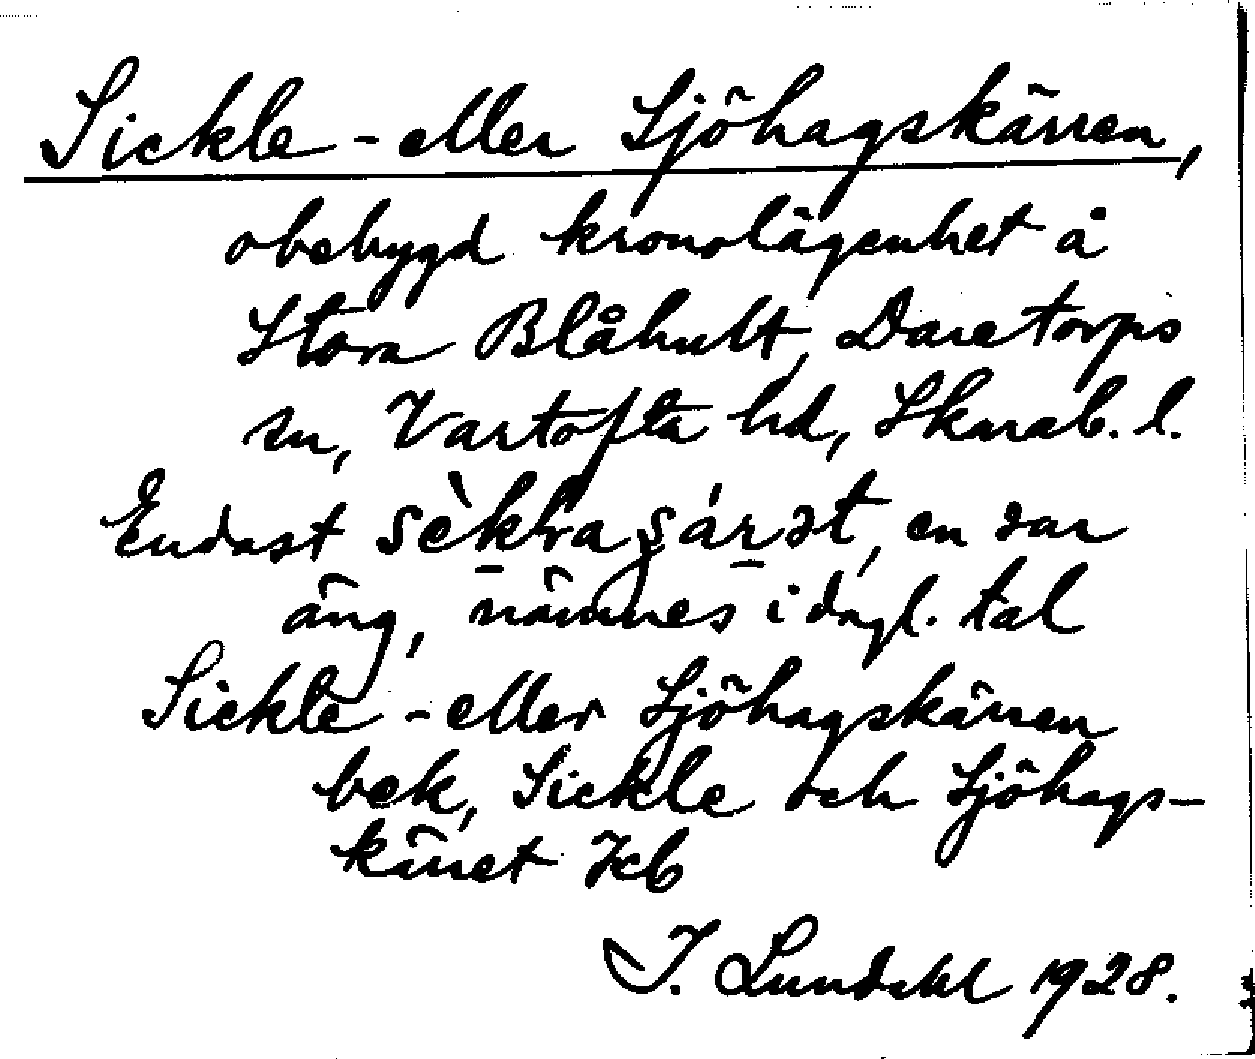 Sickle- eller Sjöhagskärren,
obebygd kronolägenhet å
Stora Blåhult, Daretorps
sn, Vartofta hd, Skarab. l.
Endast sèkḷra ṣárət, en var
äng, nämnes i dagl. tal
Sickle- eller Sjöhagskärren
bek, Sickle och Sjöhags-
kärret Jcb
I. Lundahl 1928.